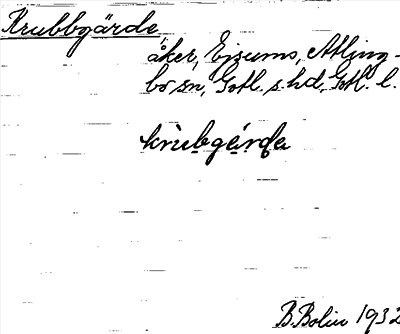 Krubbgärde
åker, Ejsums, Atling-
bo sn, Gotl. s. hd, Gotl. l.
krùbgä́rda
B. Bolin 1932